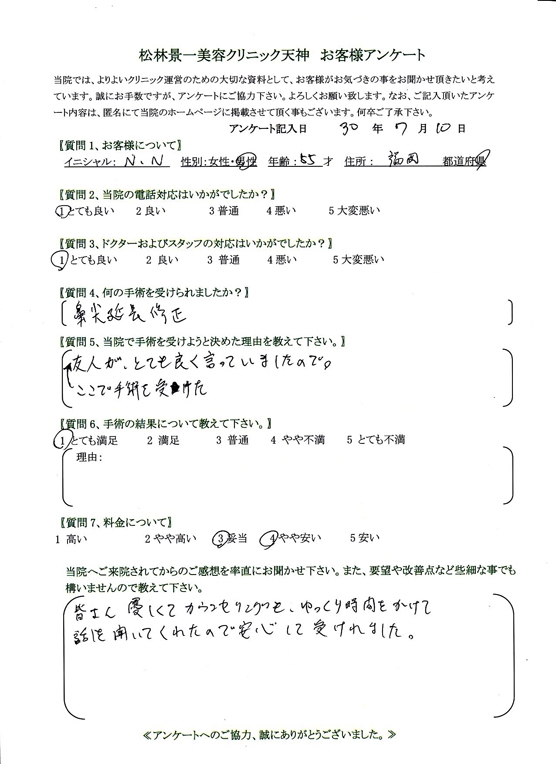 松林景一美容クリニック天神 お客様アンケート
当院では、よりよいクリニック運営のための大切な資料として、お客様がお気づきの事をお聞かせ頂きたいと考え
ています。誠にお手数ですが、アンケートにご協力下さい。よろしくお願い致します。なお、ご記入頂いたアンケ
ート内容は、匿名にて当院のホームページに掲載させて頂く事もございます。何卒ご了承下さい。
アンケート記入日 30 年 7 月 10 日
【質問1、お客様について】
イニシャル: N.N 性別:女性・男性 年齢:55 才 住所: 福岡 都道府県
【質問2、当院の電話対応はいかがでしたか?】
1 とても良い 2 良い 3 普通 4 悪い 5 大変悪い
【質問3、ドクターおよびスタッフの対応はいかがでしたか?】
1 とても良い 2 良い 3 普通 4 悪い 5 大変悪い
【質問4、何の手術を受けられましたか?】
鼻尖延長修正
【質問5、当院で手術を受けようと決めた理由を教えて下さい。】
友人が、とても良く言っていましたので。
ここで手術を受けた
【質問6、手術の結果について教えて下さい。】
1 とても満足 2 満足 3 普通 4 やや不満 5 とても不満
理由:
【質問7、料金について】
1 高い 2 やや高い 3 妥当 4 やや安い 5 安い
当院へご来院されてからのご感想を率直にお聞かせ下さい。また、要望や改善点など些細な事でも
構いませんので教えて下さい。
皆さん 優しくて カウンセリングも、ゆっくり時間をかけて
話を聞いてくれたので安心して受けれました。
≪アンケートへのご協力、誠にありがとうございました。≫